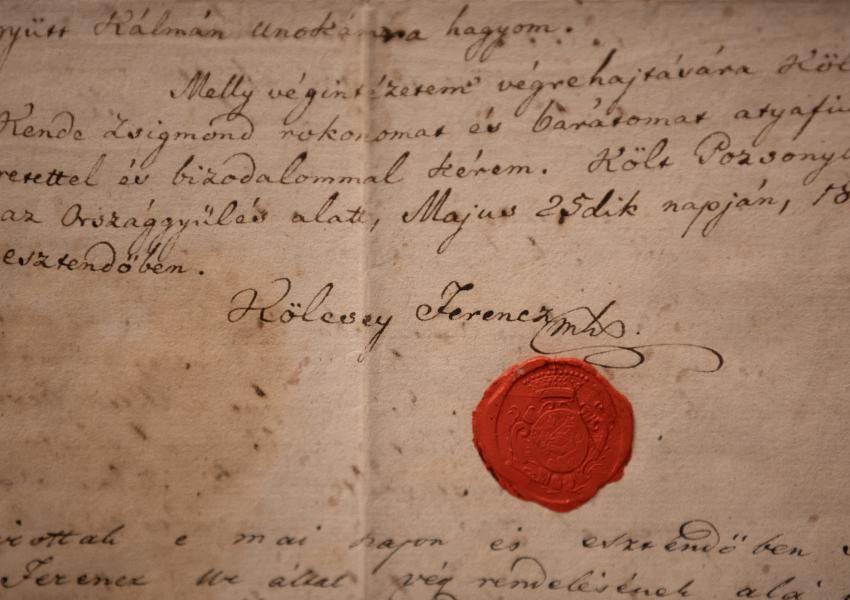 gyütt Kálmán unokámra hagyom.
Melly végintézetem végrehajtására Köl
Kende Zsigmond rokonomat és barátomat atyafiú
retettel és bizodalommal kérem. Költ Pozsonyb
az Országgyülés alatt, Majus 25dik napján, 18
esztendőben.
Kölcsey Ferencz mk.
e mai napon és esztendőben
Ferencz Ur által vég rendelésének alá